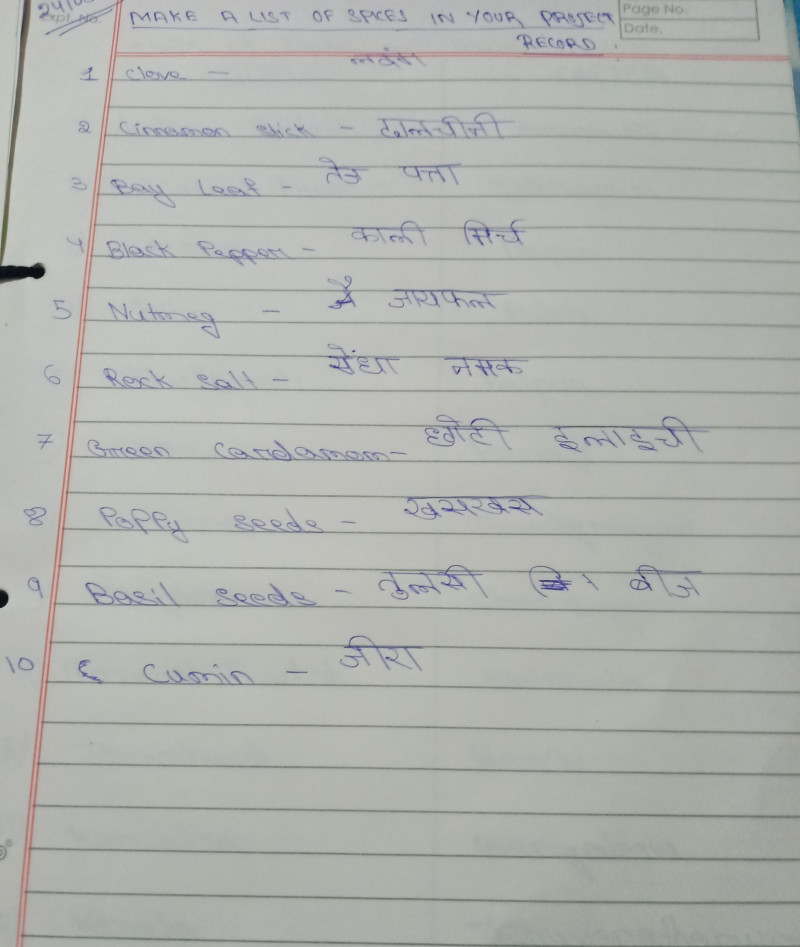 MAKE A LIST OF SPICES IN YOUR PROJECT
RECORD.
Page No.
Date.
1 Clove — लवंग
2 Cinnamon stick - दालचीनी
3 Bay leaf - तेज पत्ता
4 Black Pepper - काली मिर्च
5 Nutmeg - जायफल
6 Rock salt - सेंधा नमक
7 Green Cardamom- छोटी इलाइची
8 Poppy seeds - खसखस
9 Basil seeds - तुलसी बीज
10 Cumin - जीरा